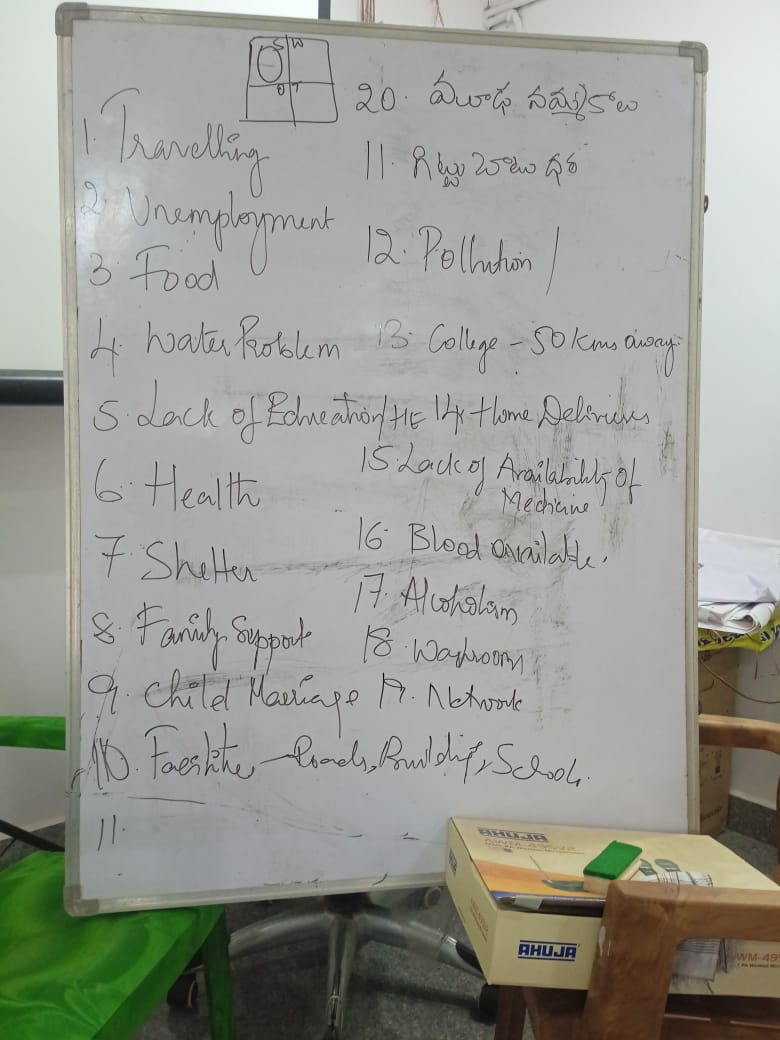 S W
O T
1. Travelling
2. Unemployment
3. Food
4. Water Problem
5. Lack of Education/HE
6. Health
7. Shelter
8. Family Support
9. Child Marriage
10. Facilities - Roads, Buildings, School.
11.
20. మూఢ నమ్మకాలు
11. గిట్టుబాటు ధర
12. Pollution /
13. College - 50 Kms away.
14. Home Deliveries
15. Lack of Availability of
Medicine
16. Blood available.
17. Alcoholism
18. Washrooms
19. Network
AHUJA
AWM-495V2
AHUJA
WM-495